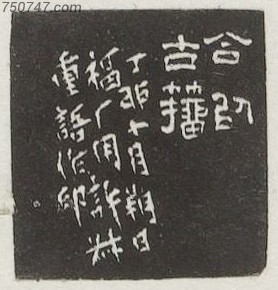 750747.com
合㠯
古籀
丁卯十月朔日
福厂用許尗
重語作印